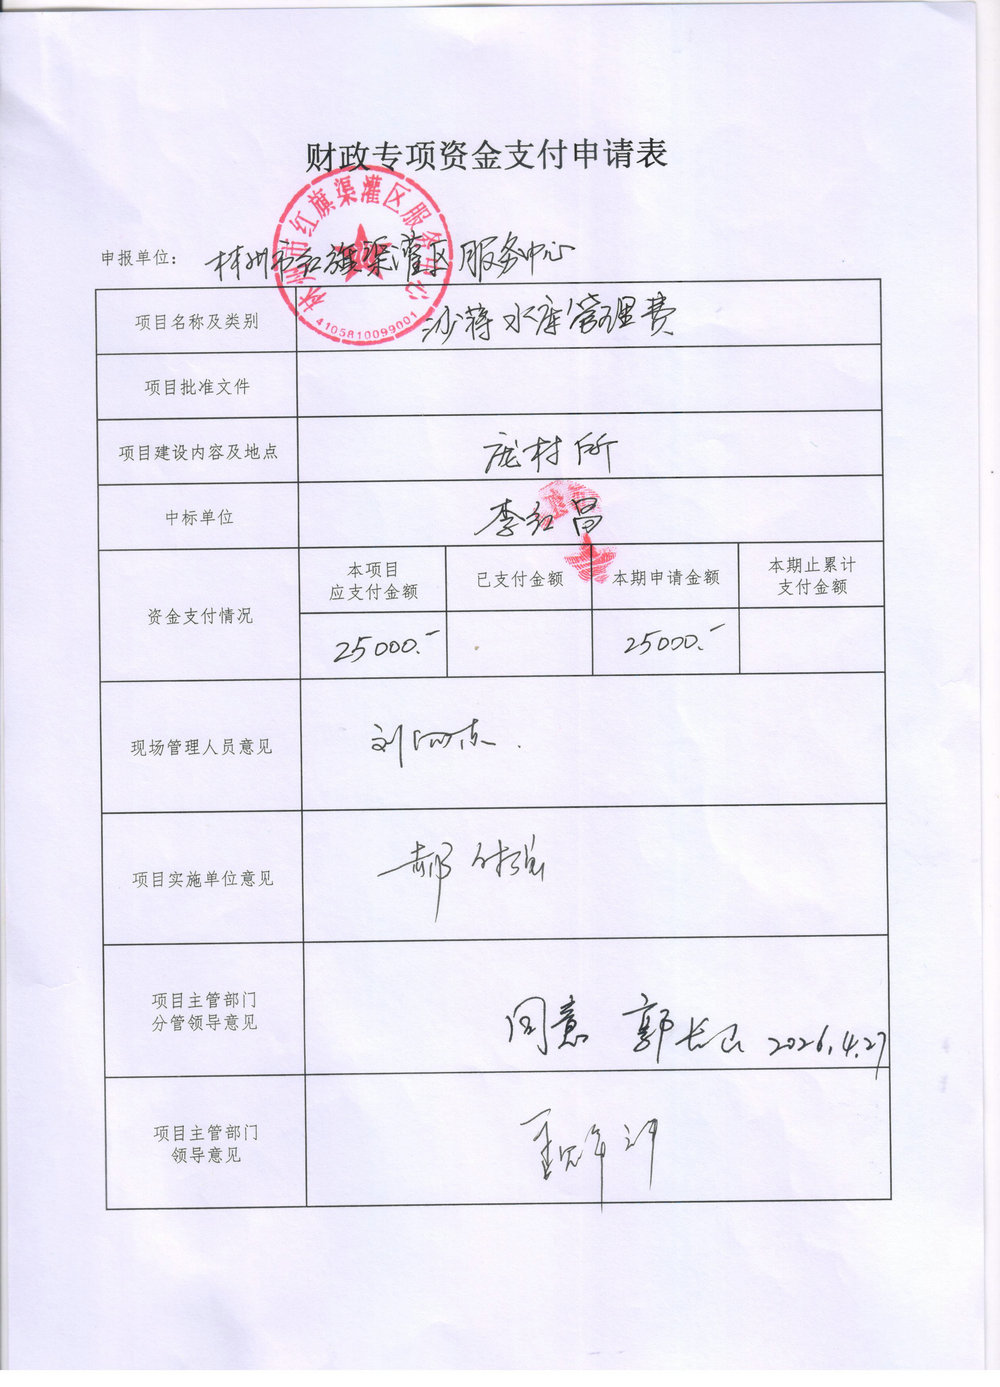 财政专项资金支付申请表
林州市红旗渠灌区服务中心
4105810099001
申报单位： 林州市红旗渠灌区服务中心
项目名称及类别 沙蒋水库管理费
项目批准文件
项目建设内容及地点 庞村所
中标单位 李红昌
资金支付情况
本项目
应支付金额
已支付金额
本期申请金额
本期止累计
支付金额
25000.-
25000.-
现场管理人员意见 刘
项目实施单位意见 郝
项目主管部门
分管领导意见
同意 郭长 2026.4.27
项目主管部门
领导意见